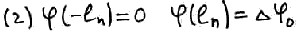 (2) φ(-ℓₙ)=0 φ(ℓₙ)=Δφ₀